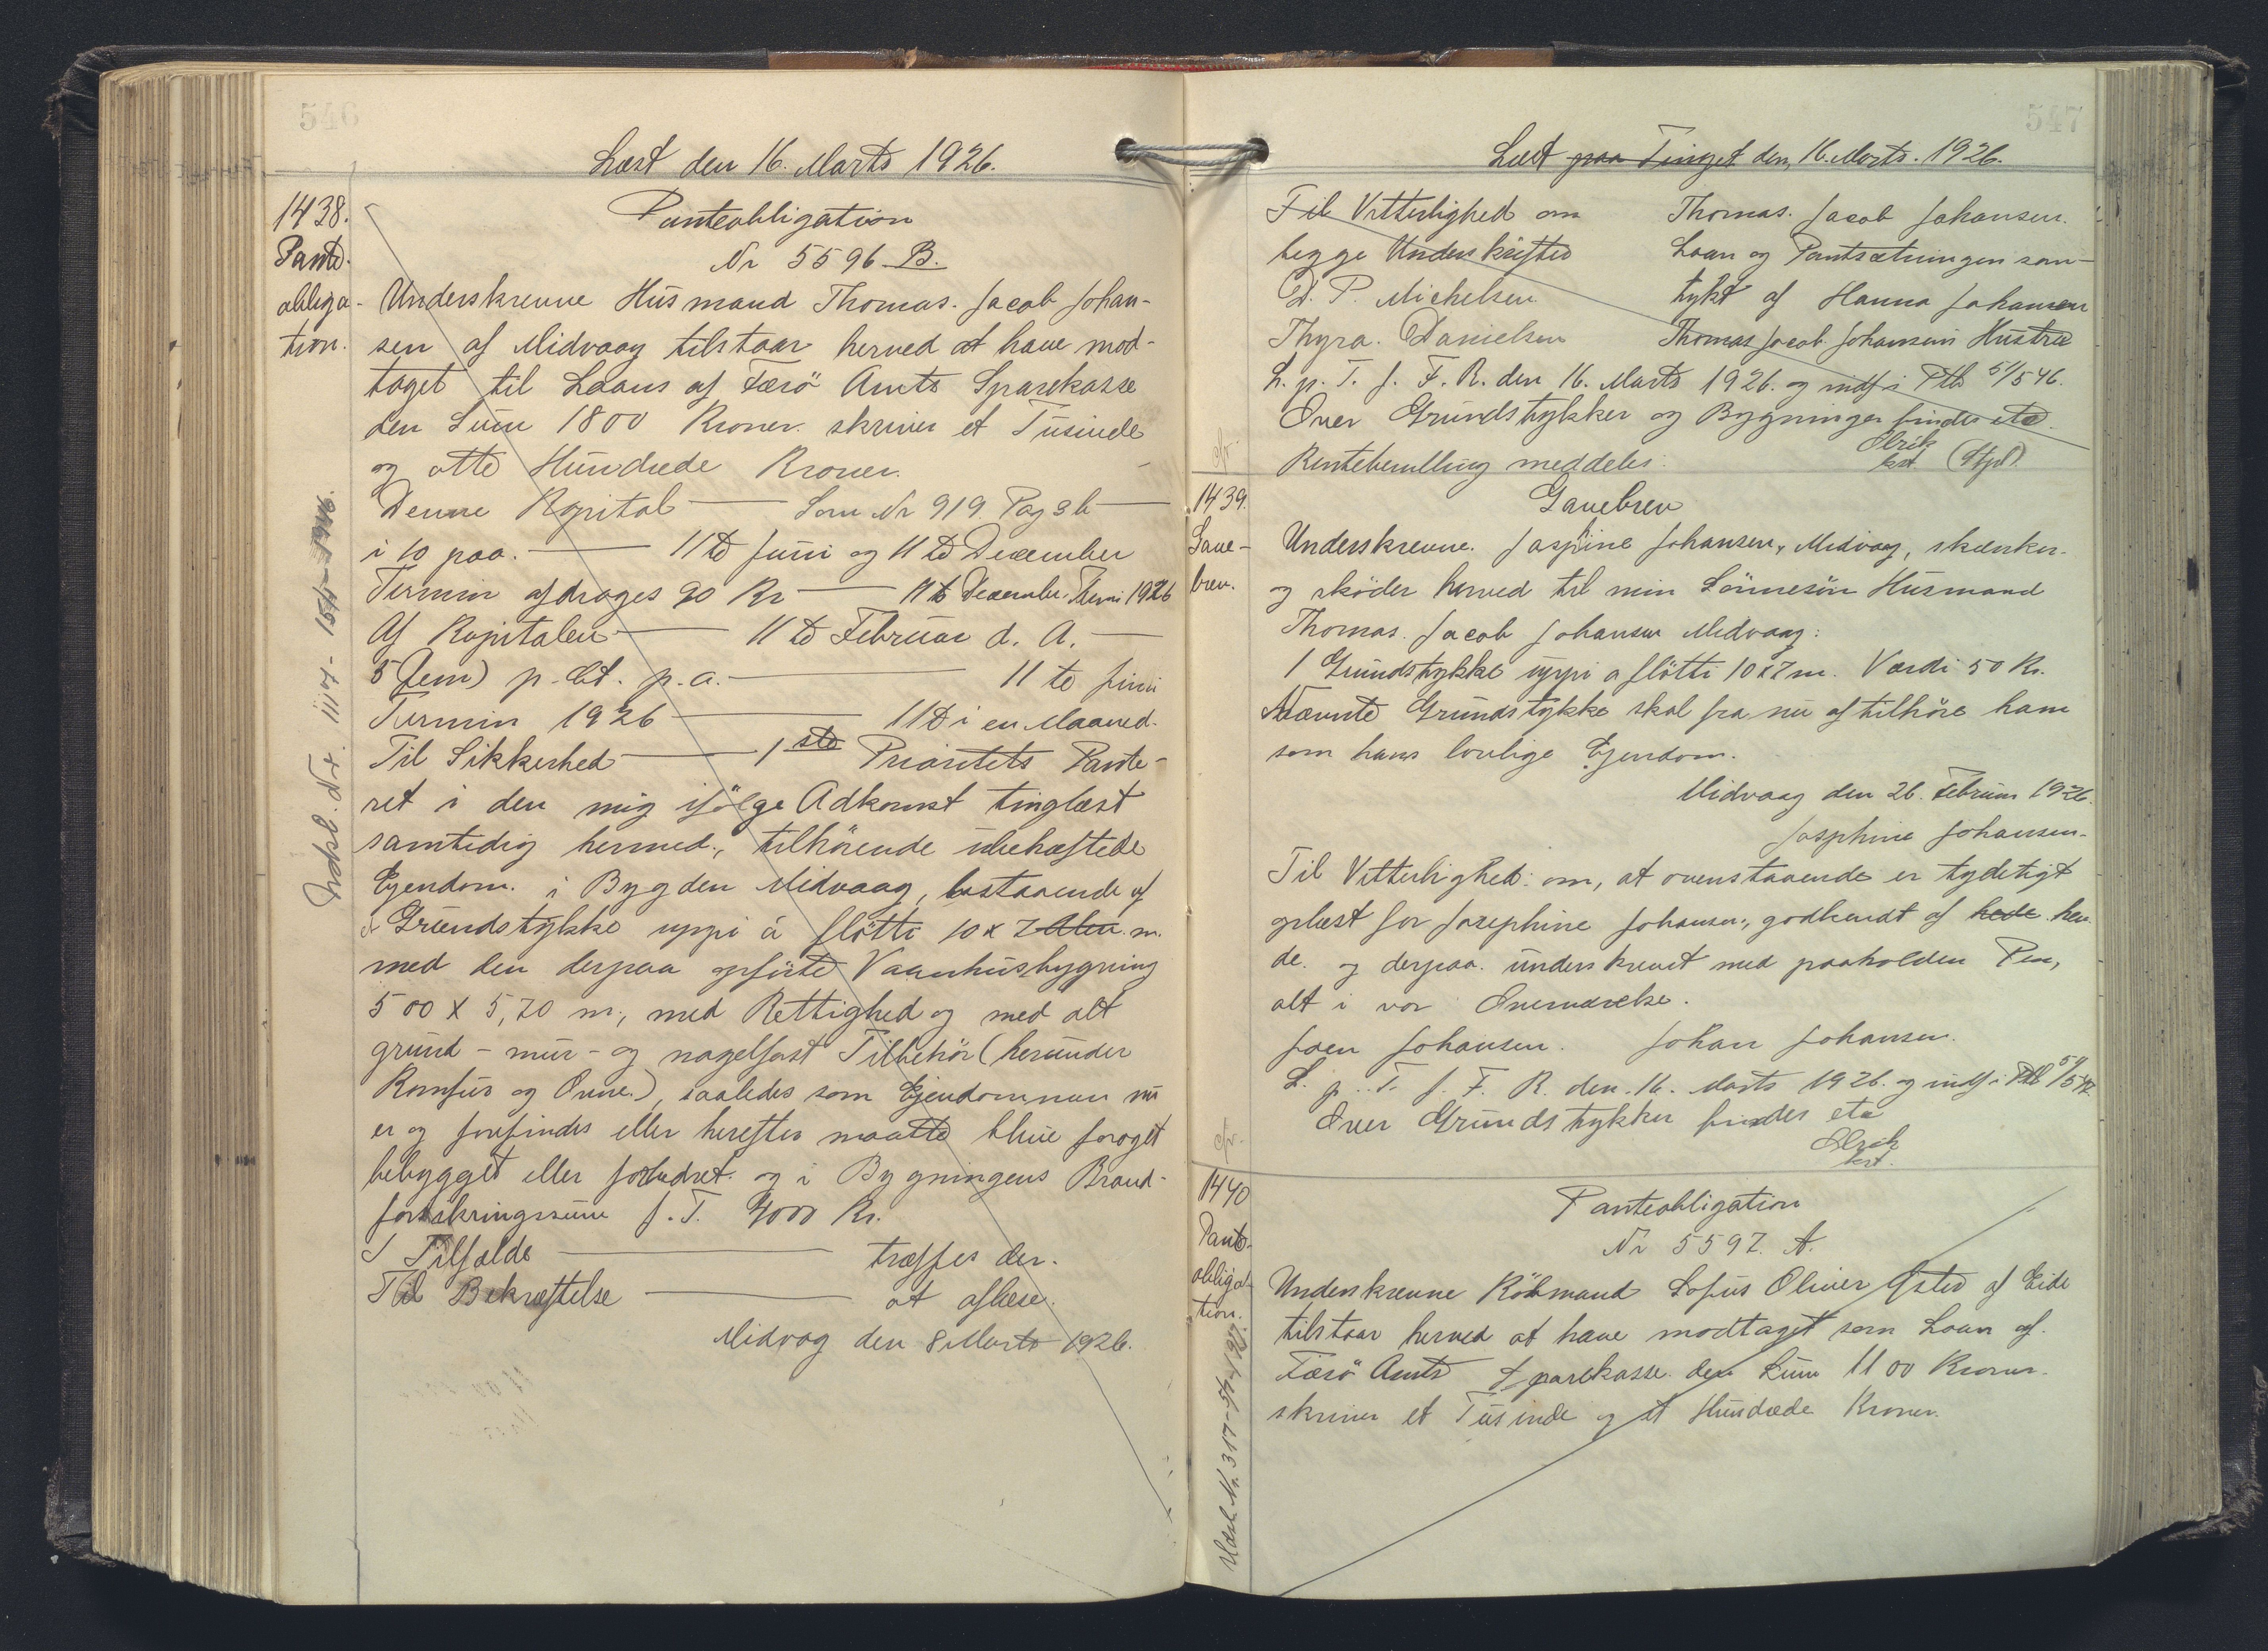 546
Læst den 16. Marts 1926.
1438.
Pante-
obliga-
tion.
Panteobligation
Nr 5596 B.
Underskrevne Husmand Thomas. Jacob Johan-
sen af Midvaag tilstaar herved at have mod-
taget til Laans af Færö Amts Sparekasse
den Sum 1800 Kroner skriver et Tusinde
og otte Hundrede Kroner.
Denne Kapital — Som Nr 919 Pag 3b —
i 10 paa. — 11te Juni og 11te December
Termin afdrages 90 Kr — 11te December Termin 1926
Af Kapitalen — 11te Februar d. A. —
5 (fem) p. Ct. p.a. — 11te Juni
Termin 1926 — 11te i en Maaned.
Til Sikkerhed — 1ste Prioritets Pante-
ret i den mig ifölge Adkomst tinglæst
samtidig hermed, tilhörende ubehæftede
Ejendom i Bygden Midvaag, bestaaende af
et Grundstykke uppi á flötti 10 x 7 Alen m.
med den derpaa opförte Vaanhusbygning
5 00 X 5,70 m, med Rettighed og med alt
grund - mur - og nagelfast Tilbehör (herunder
Komfur og Ovne), saaledes som Ejendommen nu
er og forefindes eller herefter maatte blive foröget
bebygget eller forbedret og i Bygningens Brand-
forsikringssum f. T. 4000 Kr.
I Tilfælde — træffes der.
Til Bekræftelse — at aflæse.
Midvag den 8 Marts 1926.
547
Læst paa Tinget den 16. Marts. 1926.
Til Vitterlighed om Thomas. Jacob Johansen.
begge Underskrifter Laan og Pantsætningen sam-
D. P. Michelsen tykt af Hanna Johansen
Thyra. Danielsen Thomas Jacob Johansens Hustru
L. p. T. f. F. R. den 16. Marts 1926. og indf i Ptb 51/546.
Over Grundstykker og Bygninger findes etc.
Rentebevilling meddeles. Olrik
kst (Stpl)
1439.
Gave-
brev.
Gavebrev
Underskrevne Jaspine Johansen, Midvag, skænker
og sköder herved til min Sönnesön Husmand
Thomas. Jacob Johansen Midvaag:
1 Grundstykke uppi a flötti 10 x 7 m. Værdi 50 Kr.
Nævnte Grundstykke skal fra nu af tilhöre ham
som hans lovlige Ejendom.
Midvaag den 26. Februar 1926.
Josphine Johansen.
Til Vitterlighed om, at ovenstaaende er tydeligt
oplæst for Josephine Johansen, godkendt af hede hen-
de og derpaa underskrevet med paaholden Pen,
alt i vor Overværelse.
Joen Johansen. Johan Johansen.
L. p. T. f. F. R. den 16. Marts 1926. og indf i Ptb 51/547.
Over Grundstykker findes etc
Olrik
kst.
1440
Pante-
obliga-
tion.
Panteobligation
Nr 5597. A.
Underskrevne Köbmand Sofus Olivier Ysted af Eide
tilstaar herved at have modtaget som Laan af
Færö Amts Sparekasse den Sum 1100 Kroner
skriver et Tusinde og et Hundrede Kroner.